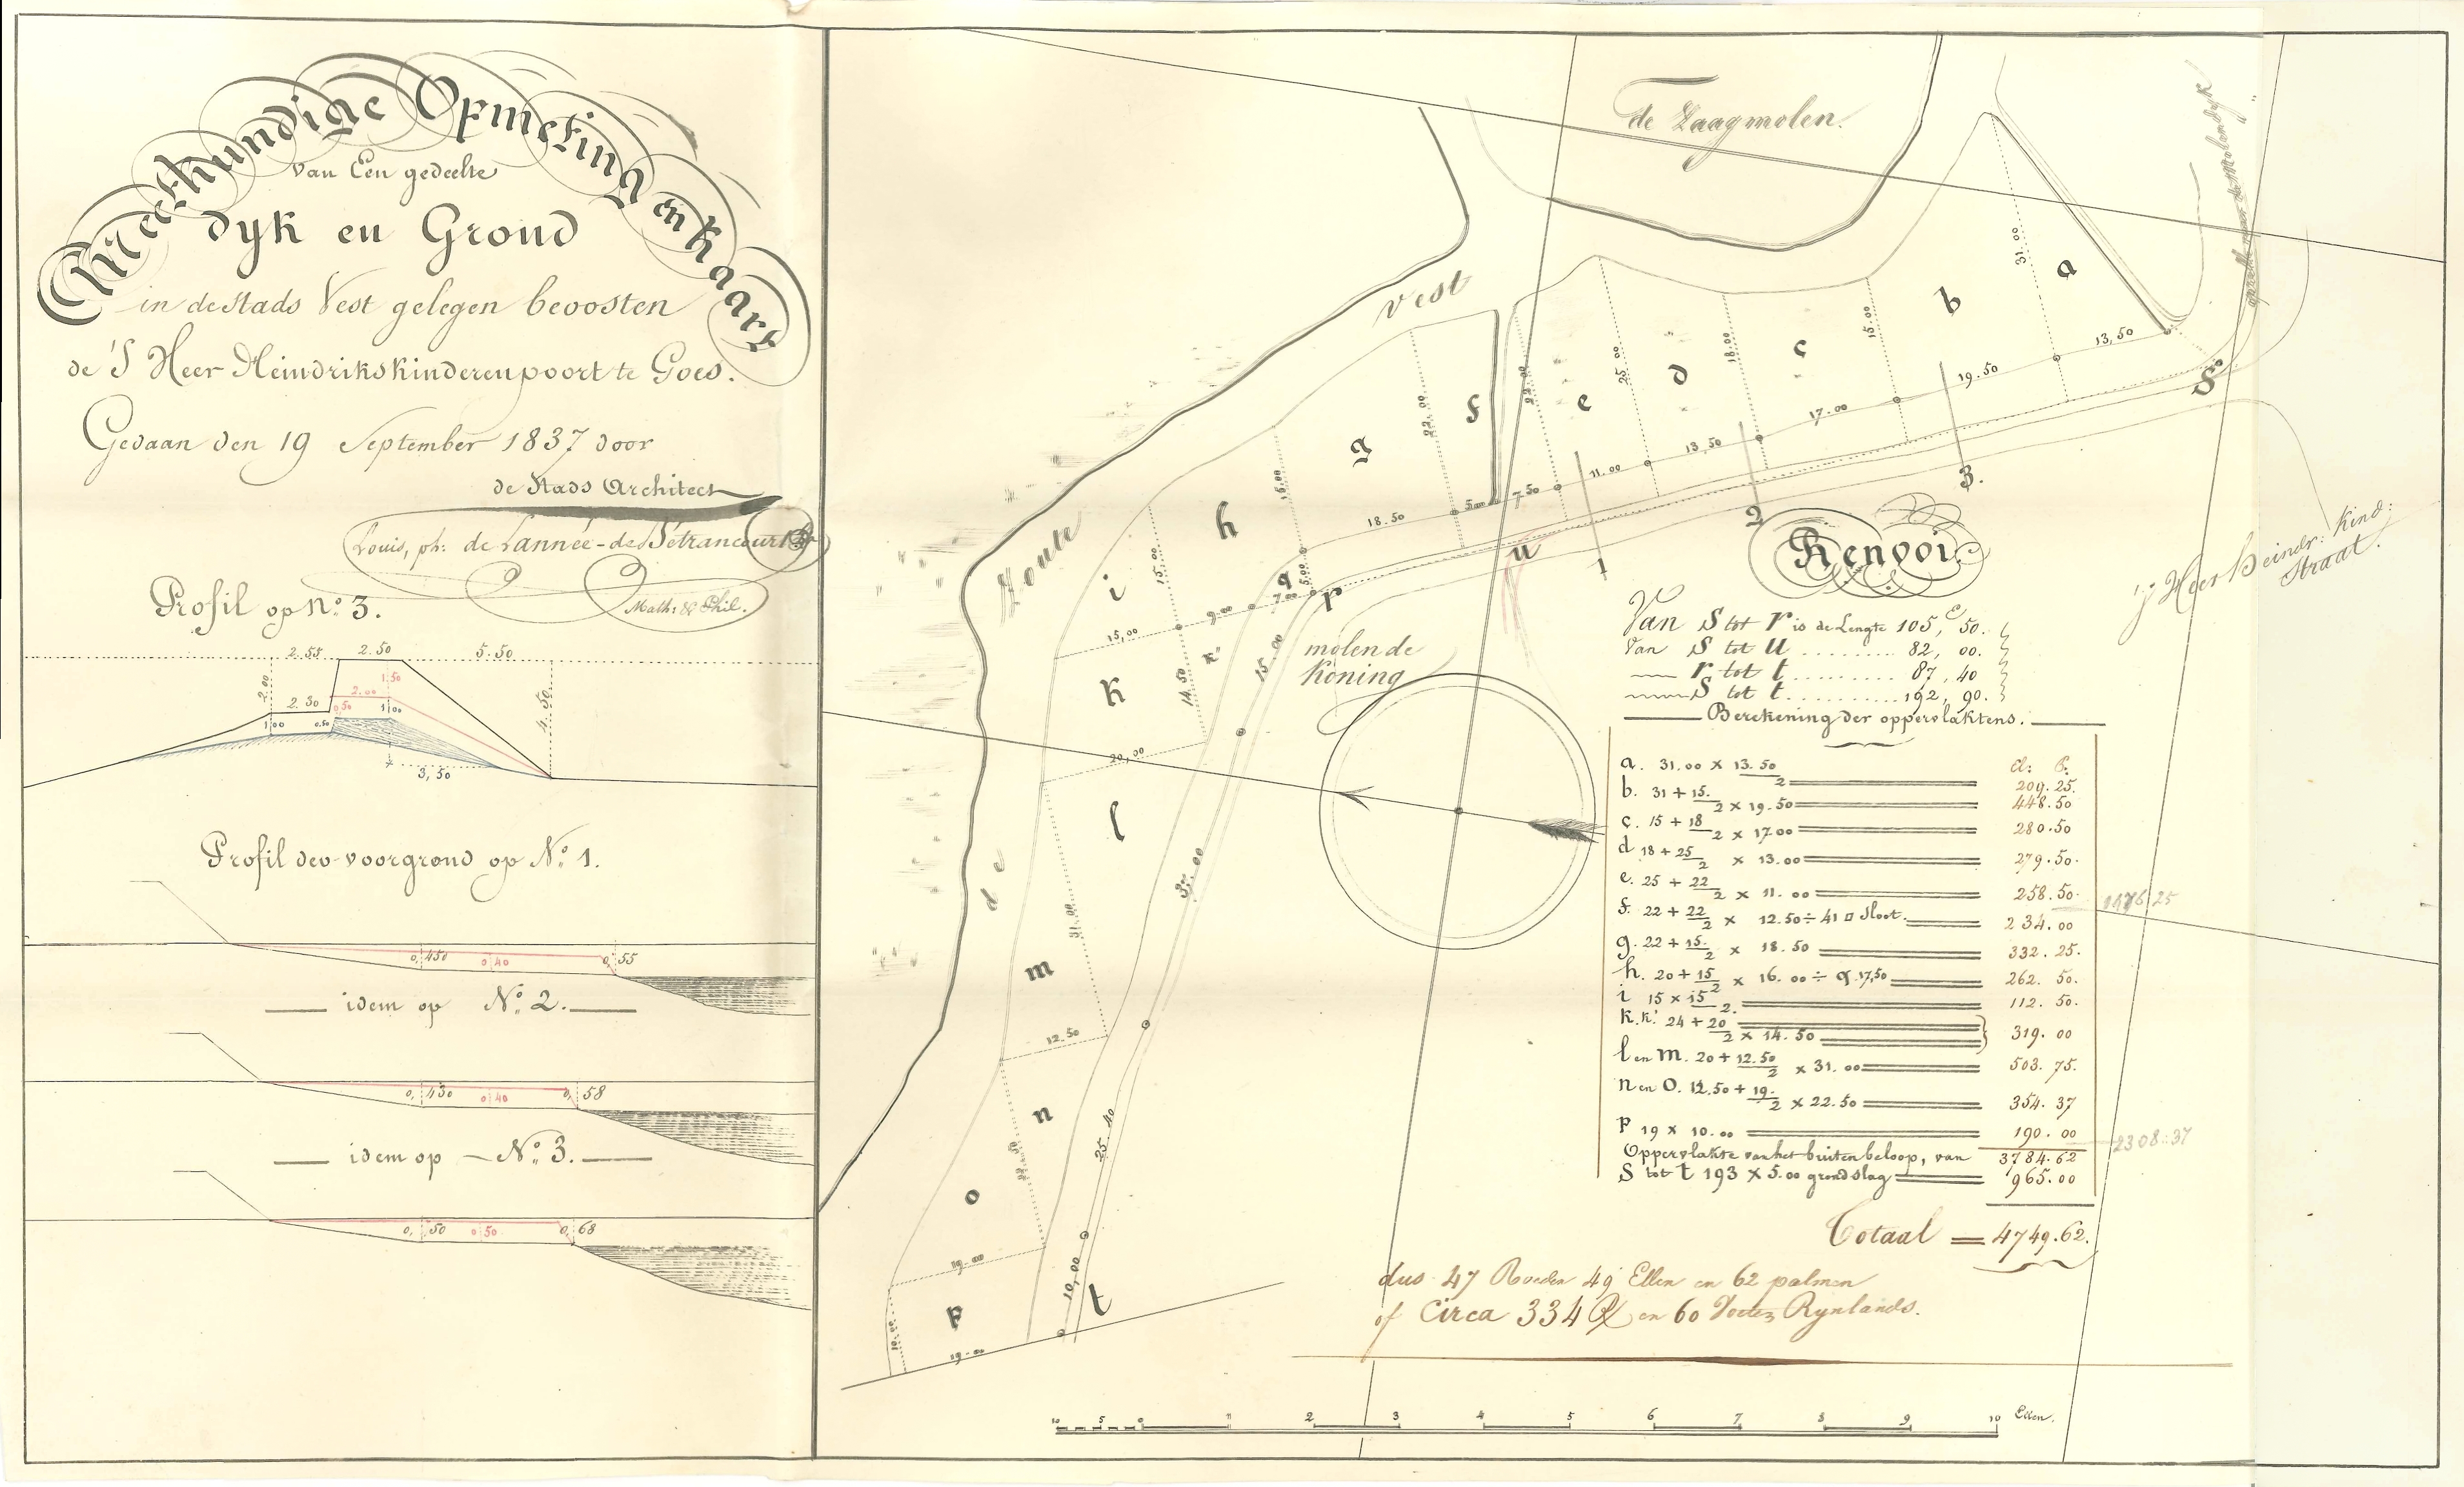 Meetkundige Opmeting en Kaart
van Een gedeelte
dyk en Grond
in de Stads Vest gelegen beoosten
de 'S Heer Heindrikskinderenpoort te Goes.
Gedaan den 19 September 1837 door
de Stads Architect
Louis, ph: de Lannée-de Bétrancourt
Math: & Phil.
Profil op no 3.
2.55 2.50 5.50
2.00
1.50
2.30 2.00
0,50
1,00 0.50 1,00
4.50
3,50
Profil der voorgrond op No 1.
0,450 0,40 0,55
idem op No 2.
0,430 0,40 0,58
idem op No 3.
0,50 0,50 0,68
de Zaagmolen.
Vest
Zoute
de
a
b
c
d
e
f
g
h
i
k
k'
l
m
n
o
P
q
r
S
t
u
31.00
15.00
18.00
25.00
22.00
22.00
15.00
15.00
13,50
19.50
17.00
13,50
11.00
7.50
18.50
15,00
14.50
15.00
20,00
31.00
37.00
12.50
25.40
19.00
10,00
19.00
1
2
3.
molen de
Koning
'S Heer Heindr: Kind:
Straat.
Renvoi
Van S tot r is de Lengte 105, 50.
Van S tot u ......... 82, 00.
r tot t .......... 87, 40
S tot t .......... 192, 90.
Berekening der oppervlaktens.
a. 31.00 × 13.50/2 209.25.
b. 31 + 15./2 × 19.50 448.50
c. 15 + 18/2 × 17.00 280.50
d 18 + 25/2 × 13.00 279.50.
e. 25 + 22/2 × 11.00 258.50
f. 22 + 22/2 × 12.50 ÷ 41 □ Sloot. 234.00
g. 22 + 15./2 × 18.50 332.25.
h. 20 + 15/2 × 16.00 ÷ q.17,50 262.50.
i 15 × 15/2. 112.50.
k.k'. 24 + 20/2 × 14.50 319.00
l en m. 20 + 12.50/2 × 31.00 503.75.
n en O. 12.50 + 19./2 × 22.50 354.37
P 19 × 10.00 190.00
Oppervlakte van het buitenbeloop, van 3784.62
S tot t 193 × 5.00 grondslag 965.00
1476.25
2308.37
Totaal = 4749.62.
dus 47 Roeden 49 Ellen en 62 palmen
of Circa 334 en 60 Voeten Rynlands.
10 5 0 1 2 3 4 5 6 7 8 9 10 Ellen.